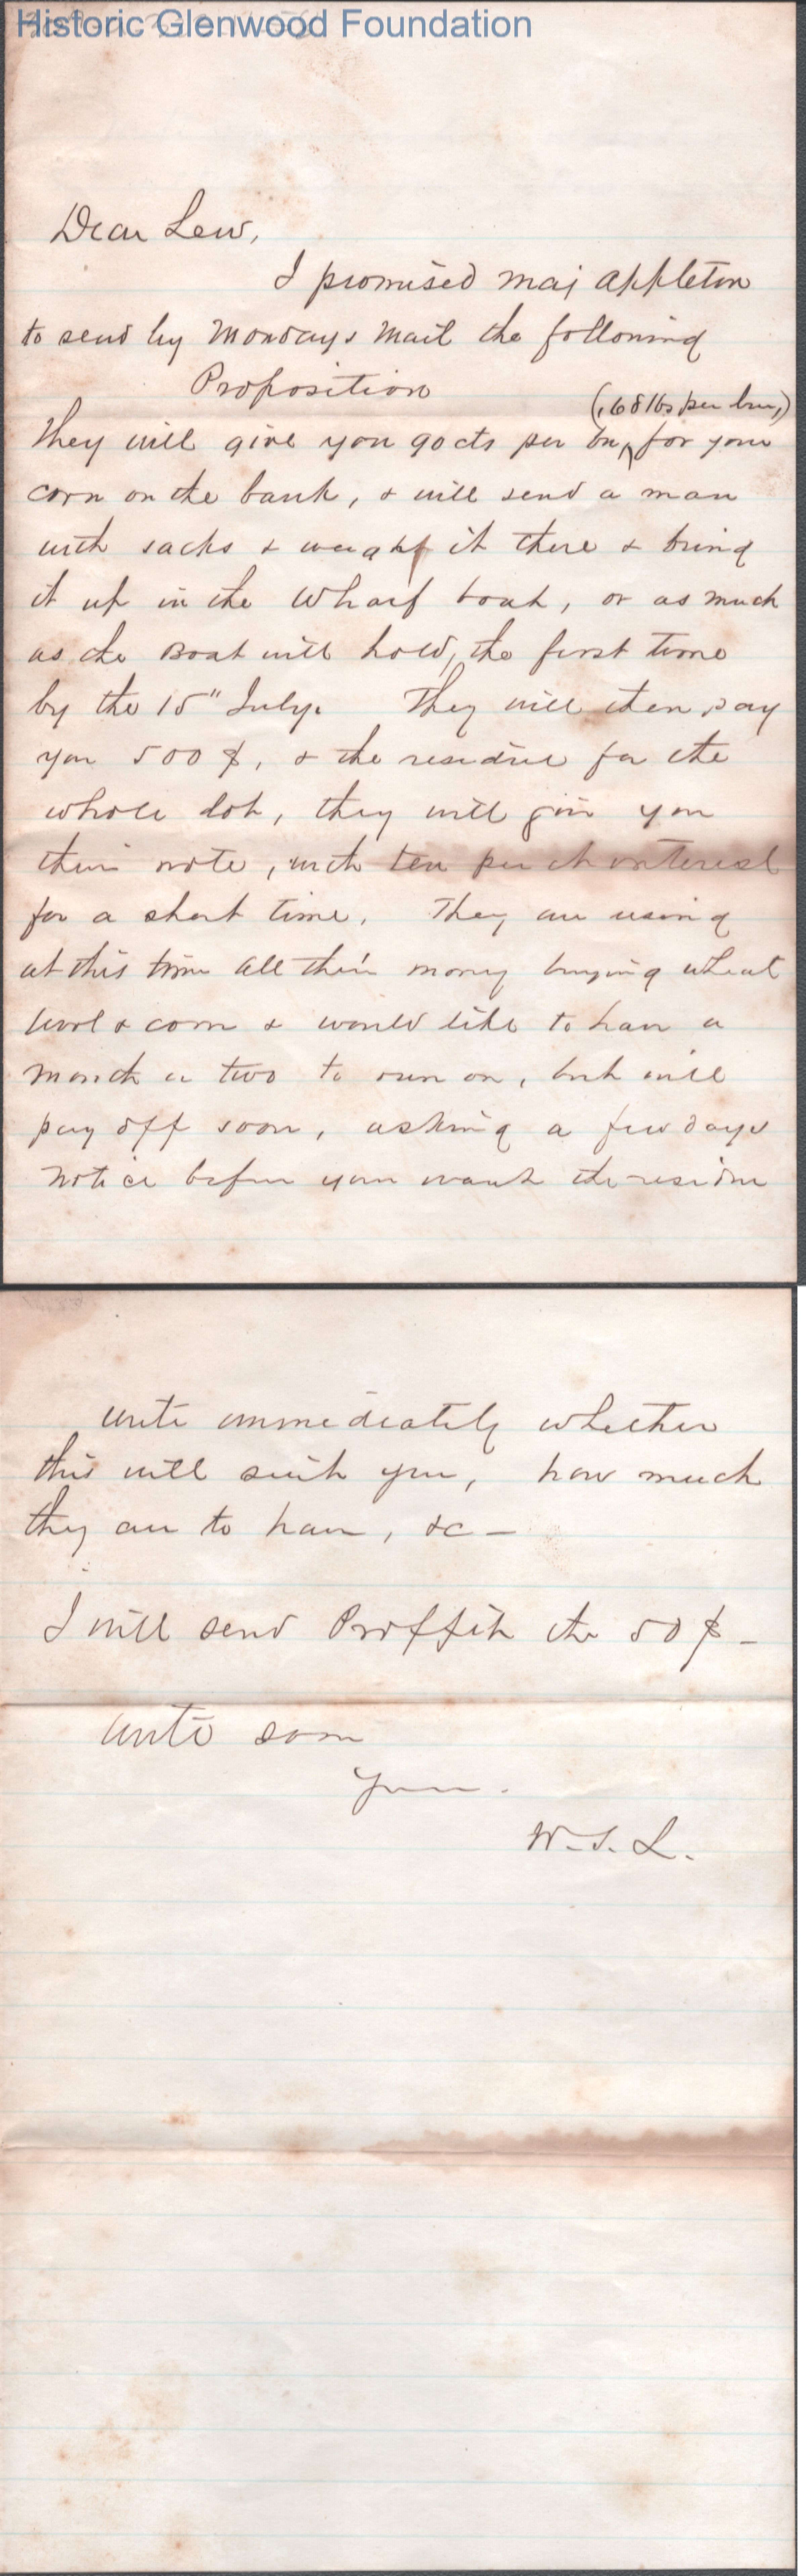 Historic Glenwood Foundation
Dear Lew,
I promised Maj Appleton
to send by Mondays Mail the following
Proposition
(68 lbs per bu,)
They will give you 90 cts per bu, for your
corn on the bank, & will send a man
with sacks & weigh it there & bring
it up in the Wharf boat, or as much
as the Boat will hold, the first time
by the 15" July. They will then pay
you 500 $, & the residue for the
whole lot, they will give you
their note, with ten per ct interest
for a short time. They are using
at this time all their money buying wheat
wool & corn & would like to have a
month or two to run on, but will
pay off soon, asking a few days
notice before you want the residue
write immediately whether
this will suit you, how much
they are to have, &c —
I will send Proffit the 50 $ —
write soon
Yours.
W. S. L.